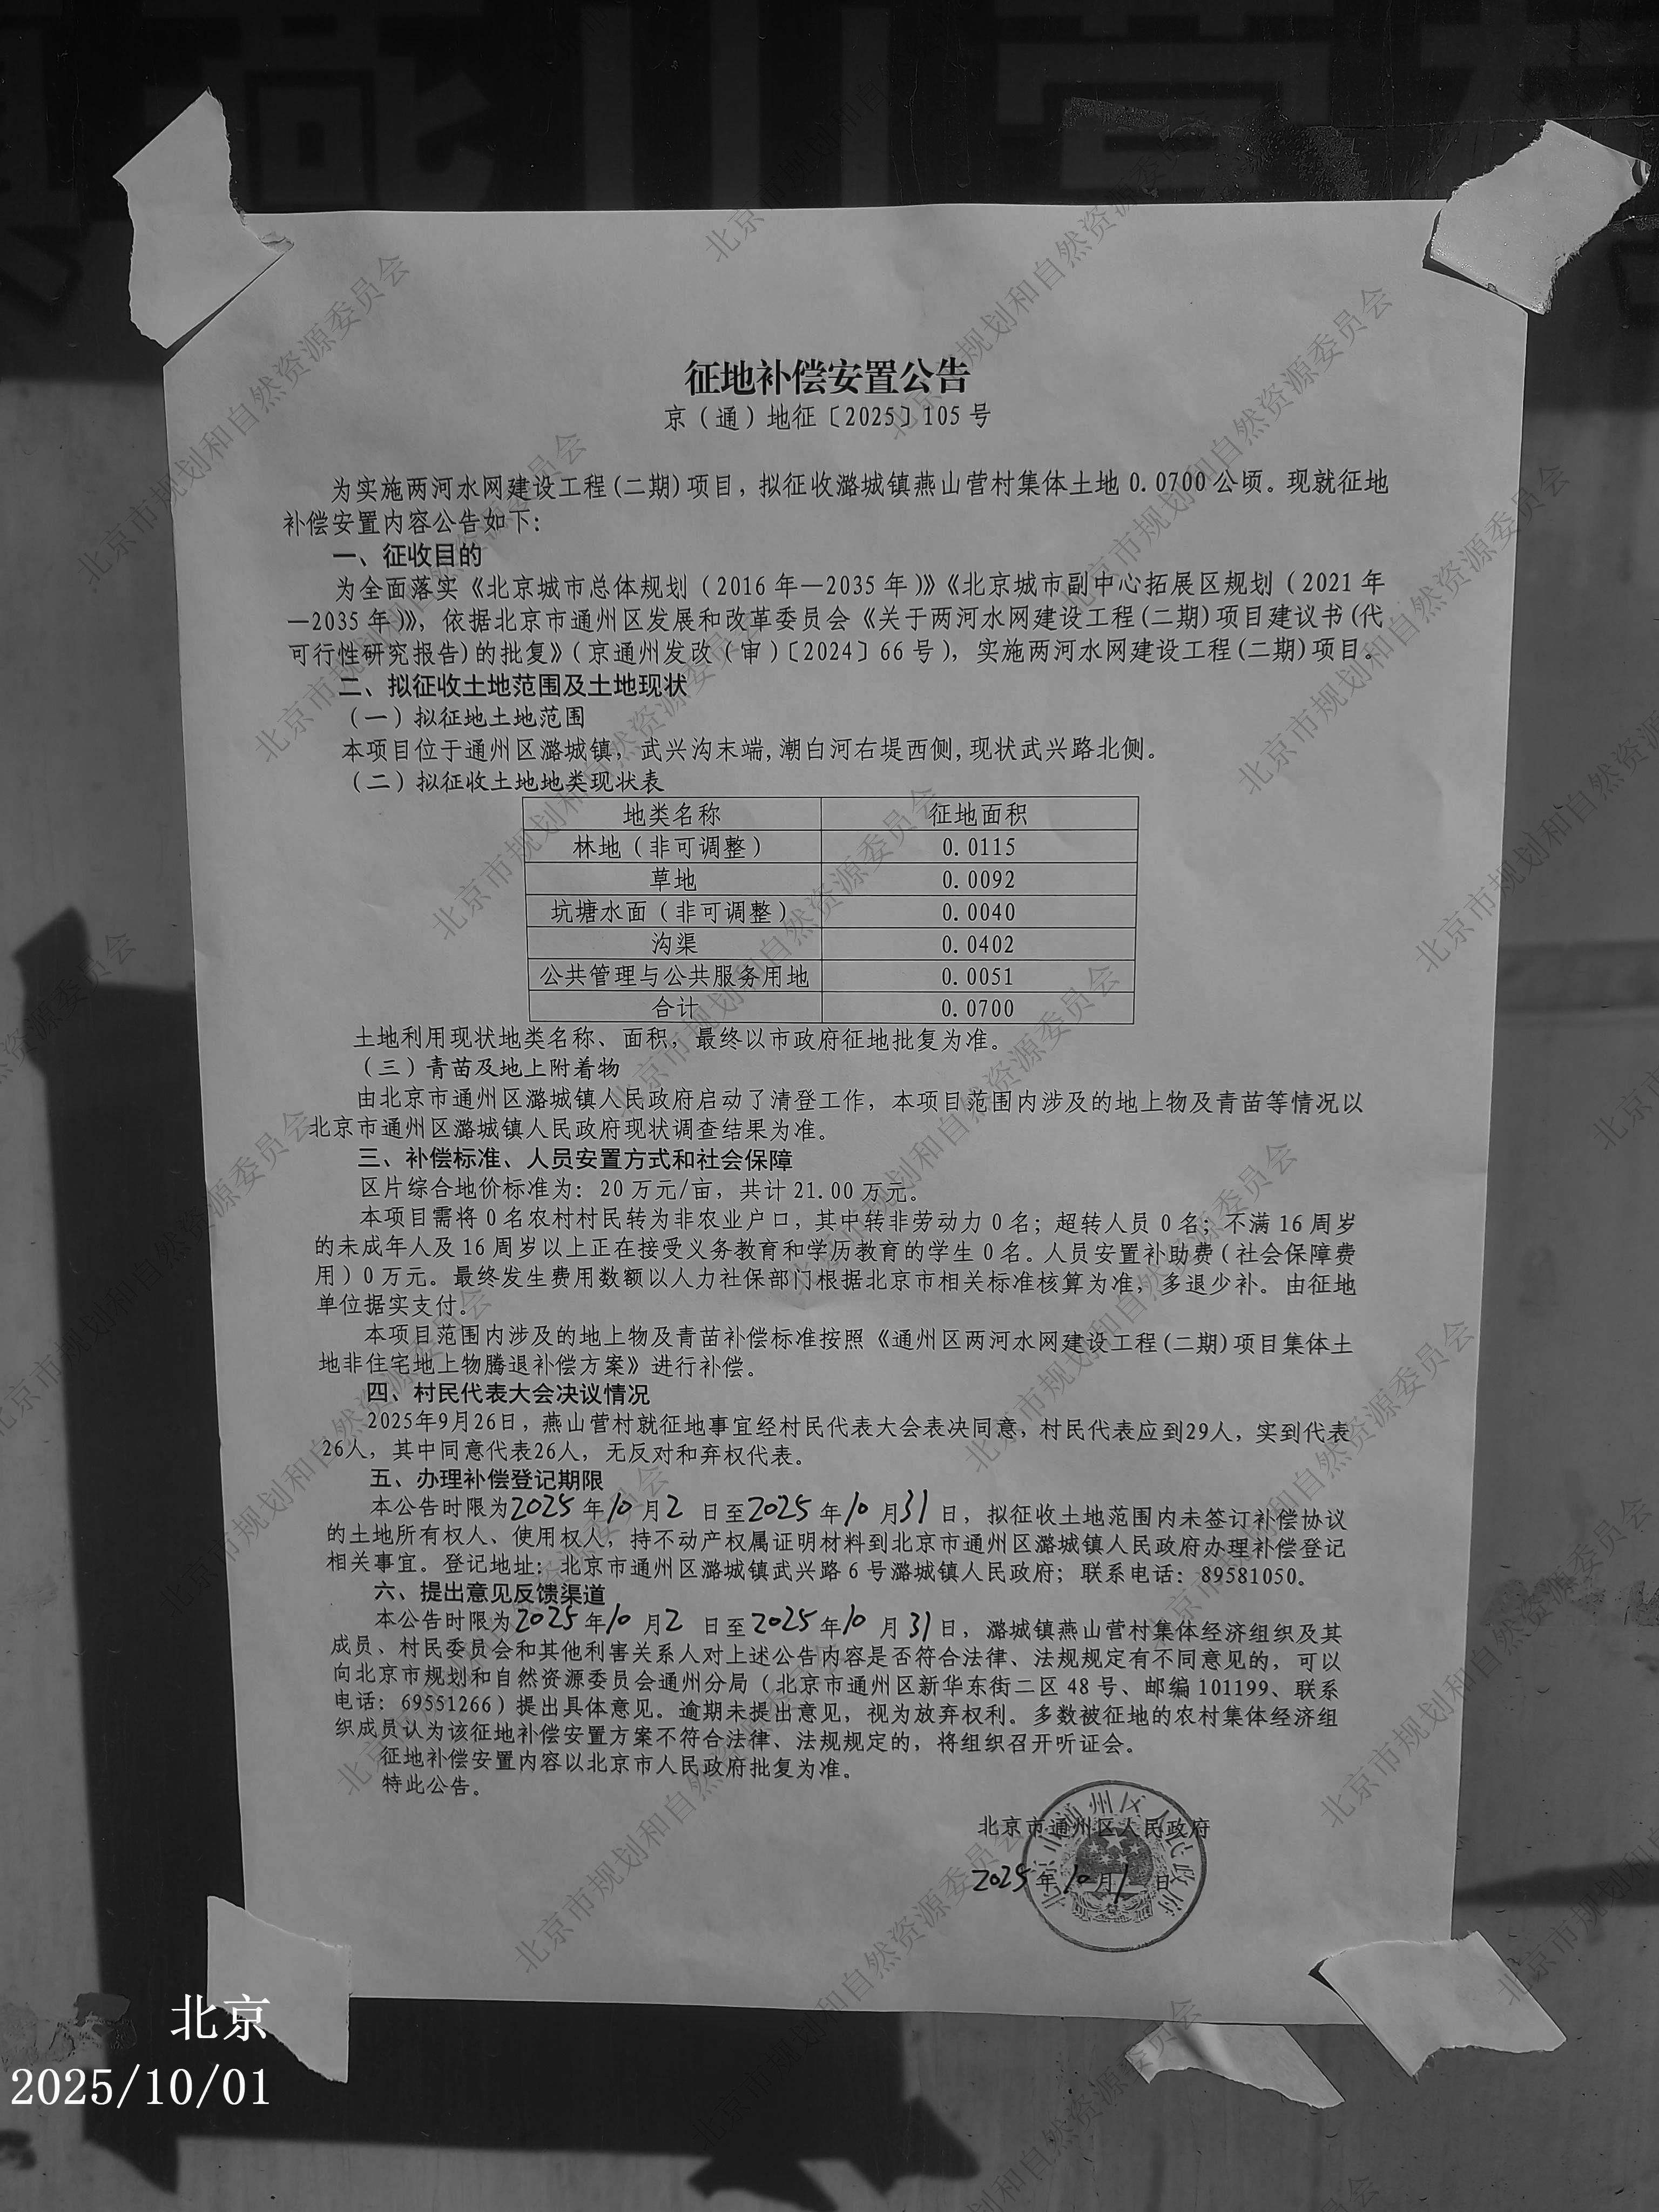 燕山营村
征地补偿安置公告
京（通）地征〔2025〕105 号
为实施两河水网建设工程(二期)项目，拟征收潞城镇燕山营村集体土地 0.0700 公顷。现就征地
补偿安置内容公告如下：
一、征收目的
为全面落实《北京城市总体规划（2016 年—2035 年）》《北京城市副中心拓展区规划（2021 年
—2035 年）》，依据北京市通州区发展和改革委员会《关于两河水网建设工程(二期)项目建议书(代
可行性研究报告)的批复》（京通州发改（审）〔2024〕66 号），实施两河水网建设工程(二期)项目。
二、拟征收土地范围及土地现状
（一）拟征地土地范围
本项目位于通州区潞城镇，武兴沟末端,潮白河右堤西侧,现状武兴路北侧。
（二）拟征收土地地类现状表
地类名称 征地面积
林地（非可调整） 0.0115
草地 0.0092
坑塘水面（非可调整） 0.0040
沟渠 0.0402
公共管理与公共服务用地 0.0051
合计 0.0700
土地利用现状地类名称、面积，最终以市政府征地批复为准。
（三）青苗及地上附着物
由北京市通州区潞城镇人民政府启动了清登工作，本项目范围内涉及的地上物及青苗等情况以
北京市通州区潞城镇人民政府现状调查结果为准。
三、补偿标准、人员安置方式和社会保障
区片综合地价标准为：20 万元/亩，共计 21.00 万元。
本项目需将 0 名农村村民转为非农业户口，其中转非劳动力 0 名；超转人员 0 名；不满 16 周岁
的未成年人及 16 周岁以上正在接受义务教育和学历教育的学生 0 名。人员安置补助费（社会保障费
用）0 万元。最终发生费用数额以人力社保部门根据北京市相关标准核算为准，多退少补。由征地
单位据实支付。
本项目范围内涉及的地上物及青苗补偿标准按照《通州区两河水网建设工程(二期)项目集体土
地非住宅地上物腾退补偿方案》进行补偿。
四、村民代表大会决议情况
2025年9月26日，燕山营村就征地事宜经村民代表大会表决同意，村民代表应到29人，实到代表
26人，其中同意代表26人，无反对和弃权代表。
五、办理补偿登记期限
本公告时限为2025 年 10 月 2 日至 2025 年 10 月 31 日，拟征收土地范围内未签订补偿协议
的土地所有权人、使用权人，持不动产权属证明材料到北京市通州区潞城镇人民政府办理补偿登记
相关事宜。登记地址：北京市通州区潞城镇武兴路 6 号潞城镇人民政府；联系电话：89581050。
六、提出意见反馈渠道
本公告时限为2025 年 10 月 2 日至 2025 年 10 月 31 日，潞城镇燕山营村集体经济组织及其
成员、村民委员会和其他利害关系人对上述公告内容是否符合法律、法规规定有不同意见的，可以
向北京市规划和自然资源委员会通州分局（北京市通州区新华东街二区 48 号、邮编 101199、联系
电话：69551266）提出具体意见。逾期未提出意见，视为放弃权利。多数被征地的农村集体经济组
织成员认为该征地补偿安置方案不符合法律、法规规定的，将组织召开听证会。
征地补偿安置内容以北京市人民政府批复为准。
特此公告。
北京市通州区人民政府
2025 年 10 月 1 日
北京市通州区人民政府
北京
2025/10/01
北京市规划和自然资源委员会